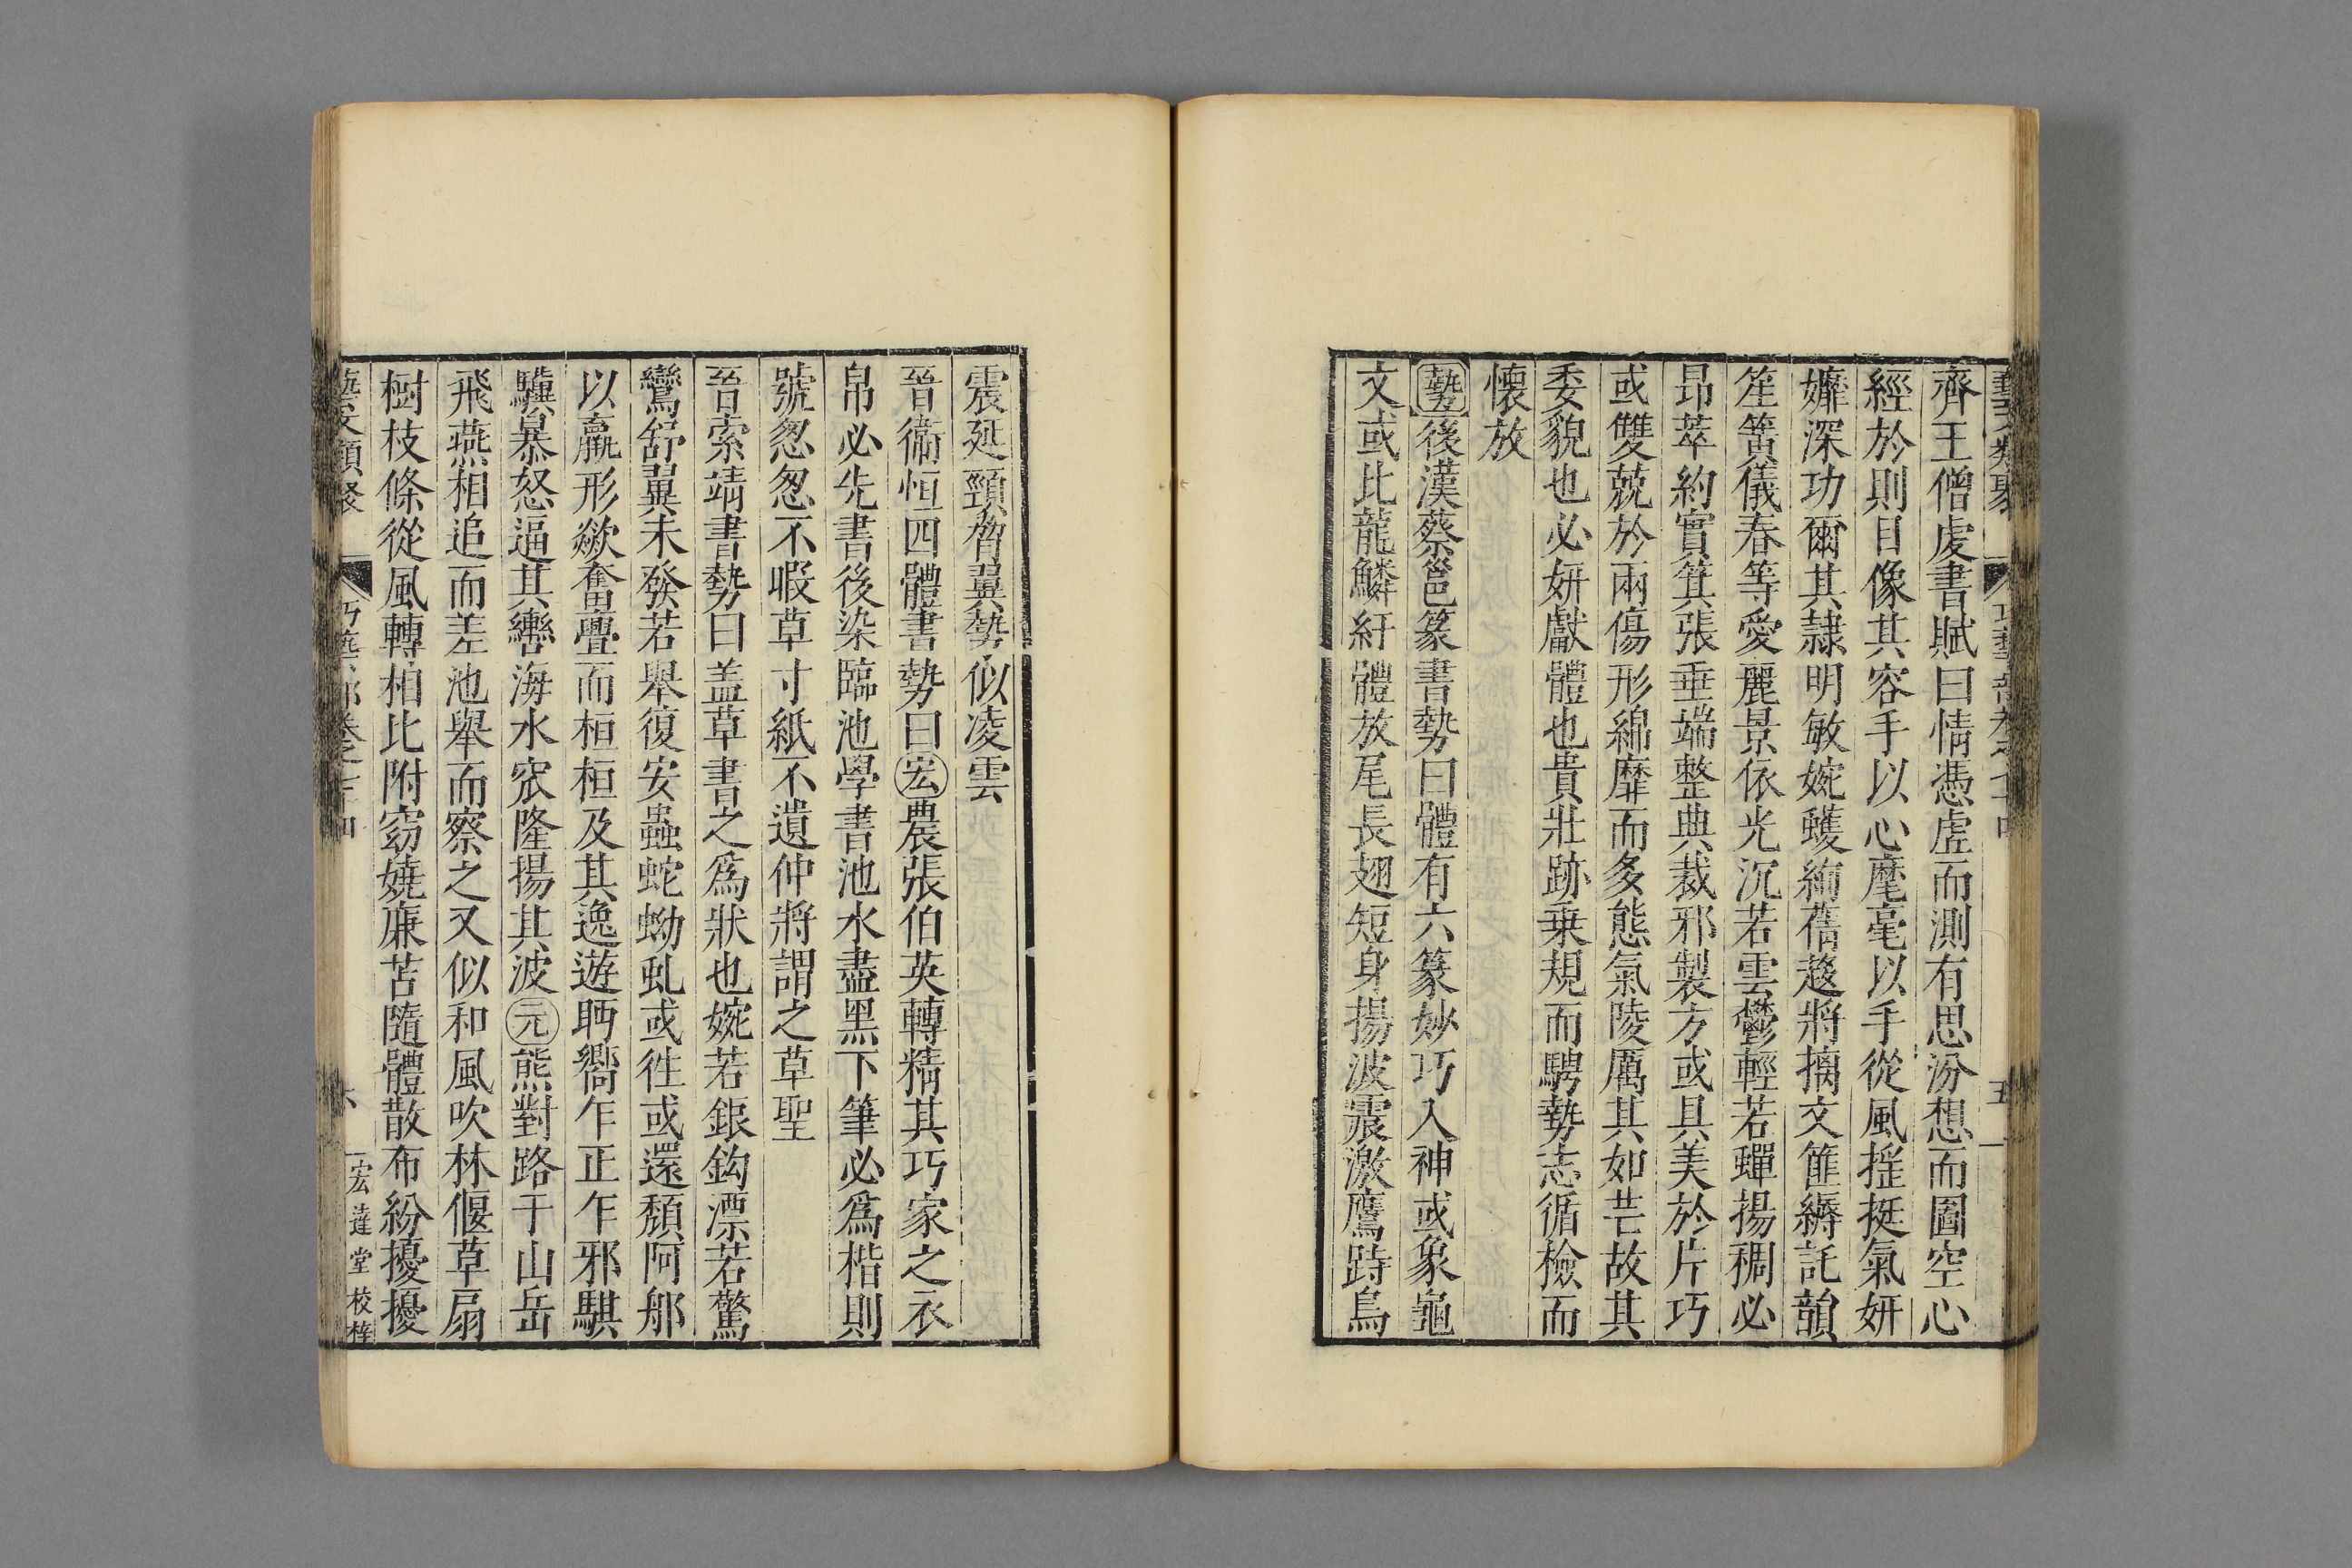 齊王僧虔書賦曰情憑虛而測有思汾想而圖空心
經於則目像其容手以心麾毫以手從風搖挺氣妍
孊深功爾其隷明敏婉蠖絢蒨趍將摛文篚縟託韻
笙簧儀春等愛麗景依光沉若雲鬱輕若蟬揚稠必
昂萃約實箕張垂端整典裁邪製方或具美於片巧
或雙兢於兩傷形綿靡而多態氣陵厲其如芒故其
委貌也必妍獻體也貴壯跡乗規而騁勢志循檢而
懷放
勢後漢蔡邕篆書勢曰體有六篆妙巧入神或象龜
文或比龍鱗紆體放尾長翅短身揚波震激鷹跱鳥
震延頸脅翼勢似凌雲
晉衞恒四體書勢曰宏農張伯英轉精其巧家之衣
帛必先書後染臨池學書池水盡黑下筆必爲楷則
號怱怱不暇草寸紙不遺仲將謂之草聖
晉索靖書勢曰盖草書之爲狀也婉若銀鈎漂若驚
鸞舒翼未發若舉復安蟲蛇蚴虬或往或還頽阿郍
以羸形歘奮亹而桓桓及其逸遊眄嚮乍正乍邪騏
驥暴怒逼其轡海水窊隆揚其波元熊對路于山岳
飛燕相追而差池舉而察之又似和風吹林偃草扇
樹枝條從風轉柏比附窈嬈廉苫隨體散布紛擾擾
藝文類聚 巧藝部卷之七十四 六 宏達堂校梓